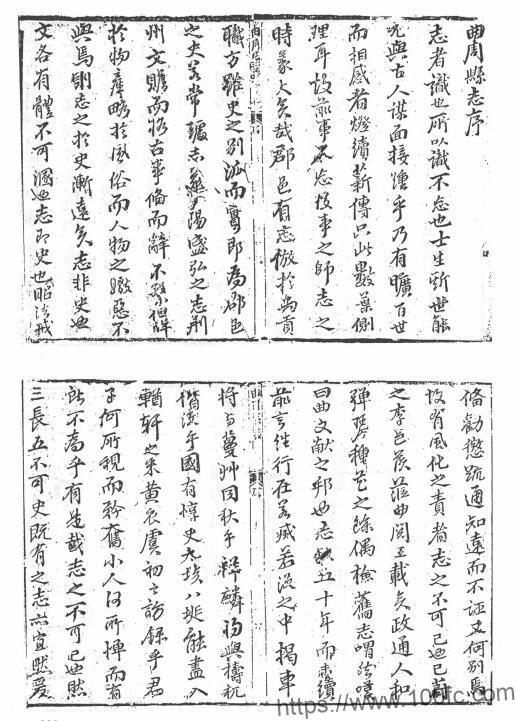 曲周縣志序
志者識也所以識不忘也士生斯世能
與古人謀面接踵乎乃有曠百世
而相感者燈續薪傳只此數葉側
理耳故前事不忘後事之師志之
時義大矣哉郡邑有志倣於禹貢
職方雖史之別派而實即為郡邑
之史若常璩志盛弘之志荊
州文贍而略古事備而辭不繁但詳
於物產略於風俗而人物之媺惡不
與焉則志之於史漸遠矣志非史也
文各有體不可溷也志即史也昭法戒
備勸懲疏通知遠而不誣又何別焉
故有風化之責者志之不可已也已前
之李邑侯蒞曲閱五載矣政通人和
彈琴種花之餘偶檢舊志喟然嘆
曰曲文獻之邦也志五十年而未續
前言往行在若滅若沒之中揭車
將與蔓艸同秋乎祥麟將與檮杌
價溷乎國有惇史九垓八埏能盡入
輶軒之采黃衣虞初之訪錄乎君
子何所視而矜奮小人何所憚而
不為乎有是哉志之不可已也然
三長五不可史既有之志亦宜然爰
https://www.10dfc.com